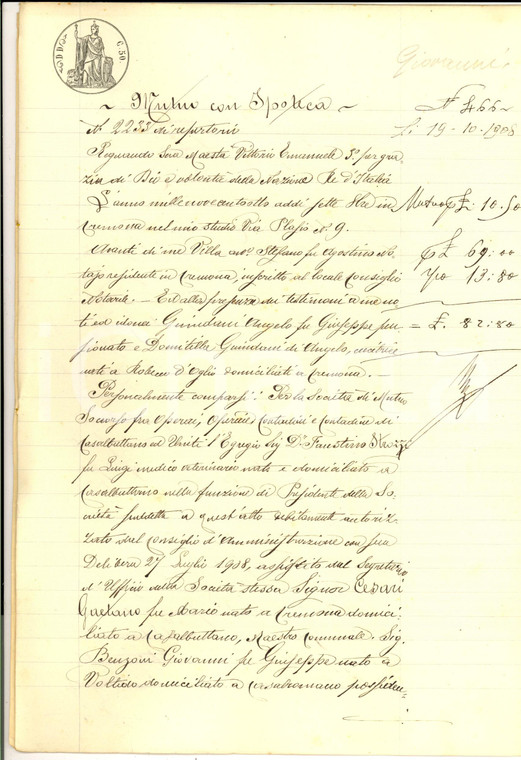 G. 50
Giovanni
~ Mutuo con Ipoteca ~
N° 466~
N. 2233 di repertorio
Li 19-10-1908
Regnando Sua Maestà Vittorio Emanuele 3° per gra
zia di Dio e volontà della Nazione Re d'Italia
L'anno millenovecentootto addì sette
Mutuo £. 10.50
Cremona nel mio studio Via Plasio N. 9.
Avanti di me Villa Stefano fu Agostino No
£ 69.00
tajo residente in Cremona, inscritto al locale Consiglio
13.80
Notarile. — Ed alla presenza dei testimoni a me no
ti ed idonei Guindani Angelo fu Giuseppe pen
= £. 82.80
sionato e Domitilla Guindani di Angelo, cucitrice
nati a Robecco d'Oglio domiciliati a Cremona. —
Personalmente comparsi: Per la Società di Mutuo
Soccorso fra Operai, Operaie Contadini e Contadine di
Casalbuttano ed Uniti l'Egregio Sig. Dr. Faustino
fu Luigi medico veterinario nato e domiciliato a
Casalbuttano nella funzione di Presidente della So
cietà suddetta a quest'atto debitamente autoriz
zato dal Consiglio d'Amministrazione con sua
Delibera 27 Luglio 1908, assistito dal Segretario
d'Ufficio della Società stessa Signor Cesari
Gaetano fu Mario nato a Cremona domici
liato a Casalbuttano, Maestro Comunale. Sig.
Benzoni Giovanni fu Giuseppe nato a
Voltido domiciliato a Casalromano possiden-